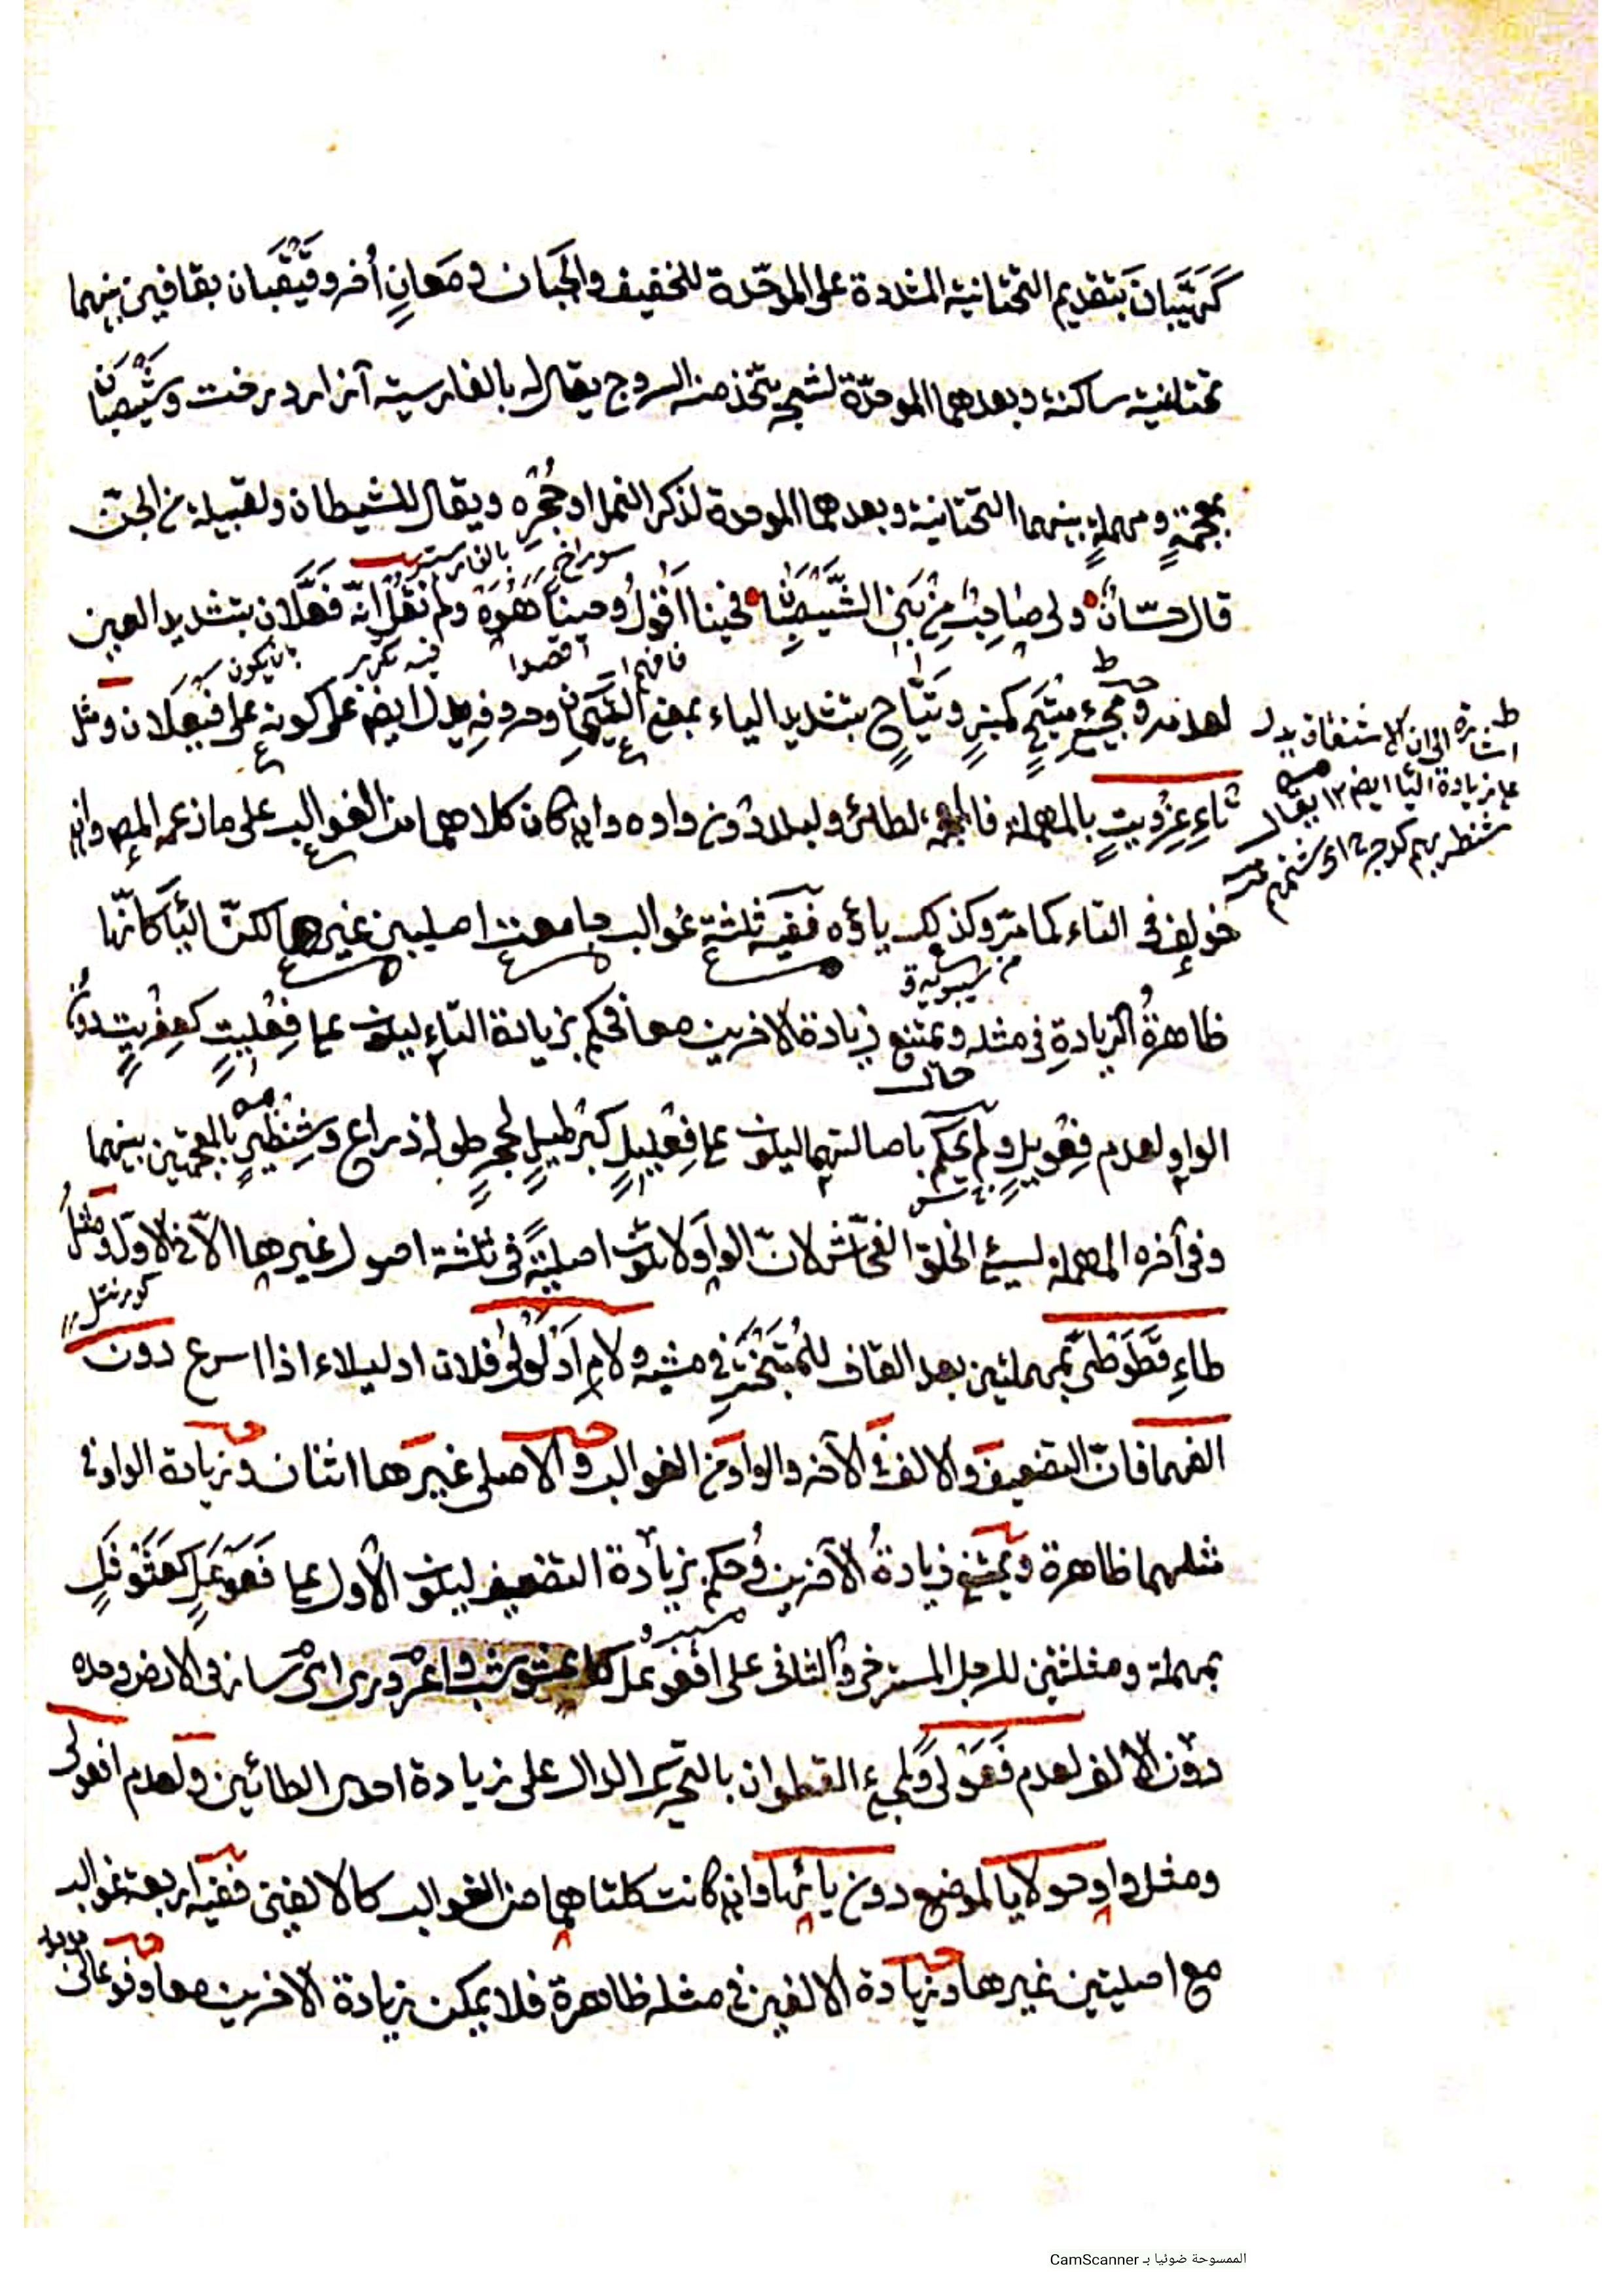 كَهَيَّبَانَ بتقديم التحتانية المشددة على الموحّدة للخفيف والجَبَان ومَعَانٍ أُخر وقَيْقَبَان بقافين بينهما
تحتانية ساكنة وبعدهما الموحّدة لشجر يتّخذ منه السروج يقال له بالفارسية آزاد درخت وشَيْصَبَان
بمعجمةٍ ومهملةٍ بينهما التحتانية وبعدهما الموحدة لذكر النمل او جُحْرِه ويقال للشيطان ولقبيلة من الجنّ
سوراخ بالفارسية
قال حسّانٌ ولى صَاحِبٌ مِنْ بَنِى الشَّيْصَبَانِ فحينا اَقُولُ وحيناً هُوَهْ ولم نَقُلْ اِنّه فَعَّلَان بتشديد العين
فافهم
فيه تكرير
بان يكون
لعدمه ومجيء مِتْيَحٍ كمنبرٍ وتَيَّاحٍ بتشديد الياء بمعنى التَّيِّحَانِ وحروفِه يدلّ ايضا على كونه على فَيْعَلَان ومثل
تاءِ عِزْوِيتٍ بالمهملة فالمعجمة لطائر ولبلد دُون واوه وان كان كلاهما من الغوالب على ما زعمه المص وان
خولف فى التاء كما مرّ وكذلك ياؤه ففيه ثلثة غوالب مع اصليين غيرها لكنّ الياء كانّها
سيبويه
ظاهرةُ الزيادةِ فى مثله ويمتنع زيادة الاخرين معا فحكم بزيادة التاء ليكون على فِعْلِيتٍ كعِفْرِيتٍ دون
حال
الواو لعدم فِعْوِيلٍ ولم يحكم باصالتهما ليكون على فِعْلِيلٍ كبِرْطِيلٍ لحجرٍ طوله ذراع وشِنْظِيرٍ بالمعجمتين بينهما
وفى آخره المهملة لسيّئ الخلق الفحّاش لانّ الواو لا يكون اصليةً فى ثلثة اصول غيرها الّا فى الاول ومثلُ
كورنتل
طاءِ قَطَوْطىً بمهملتين بعد القاف للمُتَبَخْتِر فى مشيه ولامِ اَدْلَوْلى فلان ادليلاء اذا اسرع دون
الفهما فانّ التضعيف والالف فى الآخر والواو من الغوالب والاصلى غيرها اثنان وزيادة الواو فى
مثلهما ظاهرة ويمتنع زيادةُ الآخرين وحكم بزيادة التضعيف ليكون الاول على فَعَوْعَلٍ كعَثَوْثَلٍ
بمهملة ومثلثتين للرجل المسترخى والثانى على افْعَوْعَلَ كاعشوشب واعْرَوْرى اى سار فى الارض وحده
دون الالف لعدم فَعَوْلى ولمجيء القطوان بالتحريك الدال على زيادة احدى الطائين ولعدم افعولى
ومثل واو حولايا لموضع دون يائها وان كانت كلتاهما من الغوالب كالالفين ففيه اربعة غوالب
مع اصليتين غيرها وزيادة الالفين فى مثله ظاهرة فلا يمكن زيادة الاخرين معا وفوعالى
اشارة الى ان الاشتقاق يدل
على زيادة الياء ايضا ١٢ يقال
شنظر بهم
الممسوحة ضوئيا بـ CamScanner